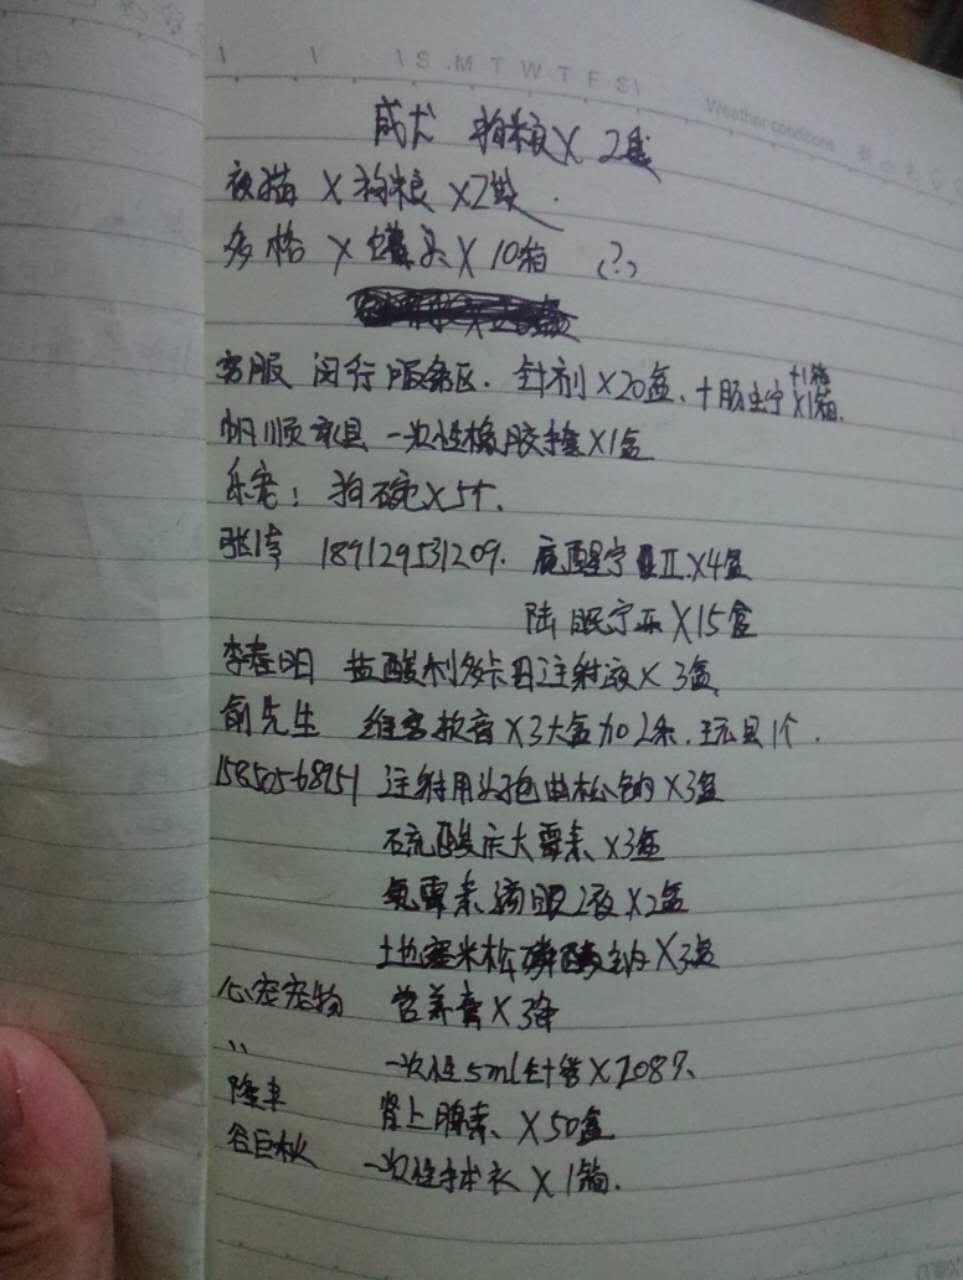 S M T W T F S
Weather conditions
成犬 狗粮X 2袋
夜猫 X 狗粮 X2袋.
多格 X 罐头 X 10箱 (?)
客服 闵行服务区. 针剂X20盒、+肠虫宁X1箱.
+1箱
帆顺 一次性橡胶手套X1盒
乐宠: 狗碗X5个.
张 189129531209. 鹿醒宁 II.X4盒
陆眠宁 X15盒
李春明 盐酸利多卡因注射液X 3盒
俞先生 维 X3大盒加2条.玩具1个.
15850568951 注射用头孢曲松钠X3盒
硫酸庆大霉素X3盒
氯霉素滴眼液X2盒
土也塞米松磷酸钠X3盒
心宠宠物 营养膏X3
〃 一次性5ml针管X208
隆丰 肾上腺素、X50盒
谷巨秋 一次性手术衣X1箱.